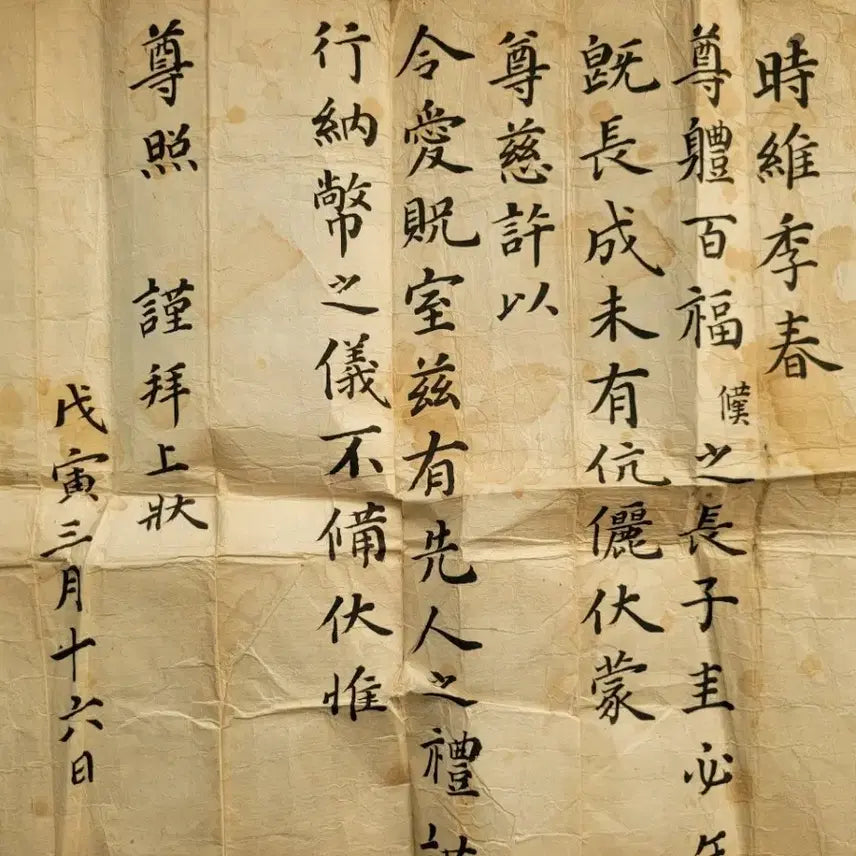 時維季春
尊體百福僕之長子圭必年
既長成未有伉儷伏蒙
尊慈許以
令愛貺室茲有先人之禮謹
行納幣之儀不備伏惟
尊照 謹拜上狀
戊寅三月十六日